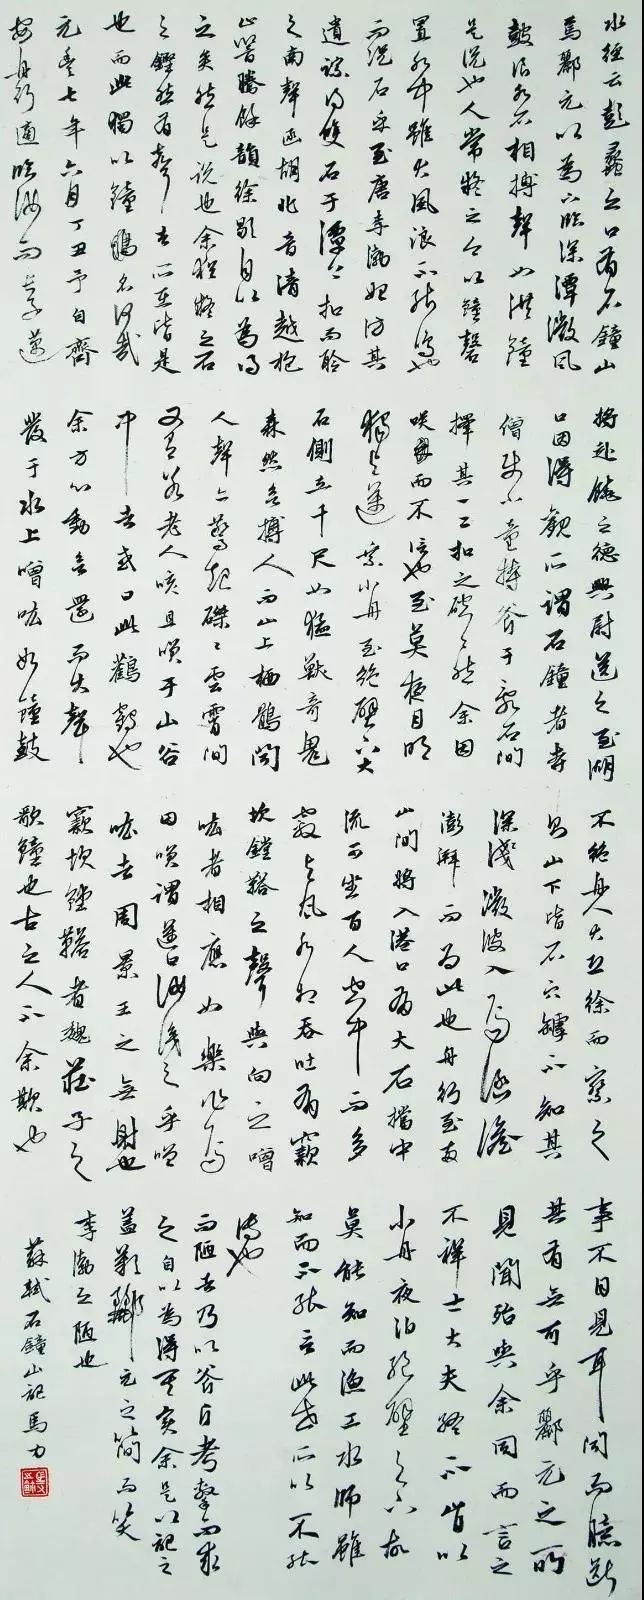 水經云彭蠡之口有石鐘山
焉酈元以為下臨深潭微風
鼓浪水石相搏聲如洪鐘
是說也人常疑之今以鐘磬
置水中雖大風浪不能鳴也
而況石乎至唐李渤始訪其
遺踪得雙石于潭上扣而聆
之南聲函胡北音清越枹
止響騰餘韻徐歇自以為得
之矣然是說也余猶疑之石
之鏗然有聲者所在皆是
也而此獨以鐘鳴名何哉
元豐七年六月丁丑予自齊
安舟行適臨汝而長子邁
將赴饒之德興尉送之至湖
口因得觀所謂石鐘者寺
僧使小童持斧于亂石間
擇其一二扣之硿硿然余固
笑而不信也至莫夜月明
獨與邁乘小舟至絕壁下大
石側立千尺如猛獸奇鬼
森然欲搏人而山上栖鶻聞
人聲亦驚起磔磔雲霄間
又有若老人咳且笑于山谷
中者或曰此鸛鶴也
余方心動欲還而大聲
發于水上噌吰如鐘鼓
不絕舟人大恐徐而察之
則山下皆石穴罅不知其
深淺微波入焉涵澹
澎湃而為此也舟行至兩
山間將入港口有大石擋中
流可坐百人空中而多
竅與風水相吞吐有窾
坎鏜鞳之聲與向之噌
吰者相應如樂作焉
因笑謂邁曰汝識之乎噌
吰者周景王之無射也
窾坎鏜鞳者魏莊子之
歌鐘也古之人不余欺也
事不目見耳聞而臆斷
其有無可乎酈元之所
見聞殆與余同而言之
不詳士大夫終不肯以
小舟夜泊絕壁之下故
莫能知而漁工水師雖
知而不能言此世所以不能
傳也
而陋者乃以斧斤考擊而求
之自以為得其實余是以記之
蓋歎酈元之簡而笑
李渤之陋也
蘇軾石鐘山記馬力